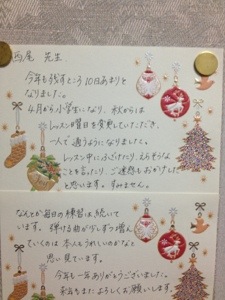 西尾 先生
今年も残すところ10日あまりと
なりました。
4月から小学生になり、秋からは
レッスン曜日を変更していただき、
一人で通うようになりました。
レッスン中にふざけたり、えらそうな
ことを言ったり、ご迷惑もおかけした
と思います。すみません。
なんとか毎日の練習は続いて
います。弾ける曲が少しずつ増え
ていくのは本人もうれしいのかなと
思い見ています。
今年も一年ありがとうございました。
来年もまたよろしくお願いします。